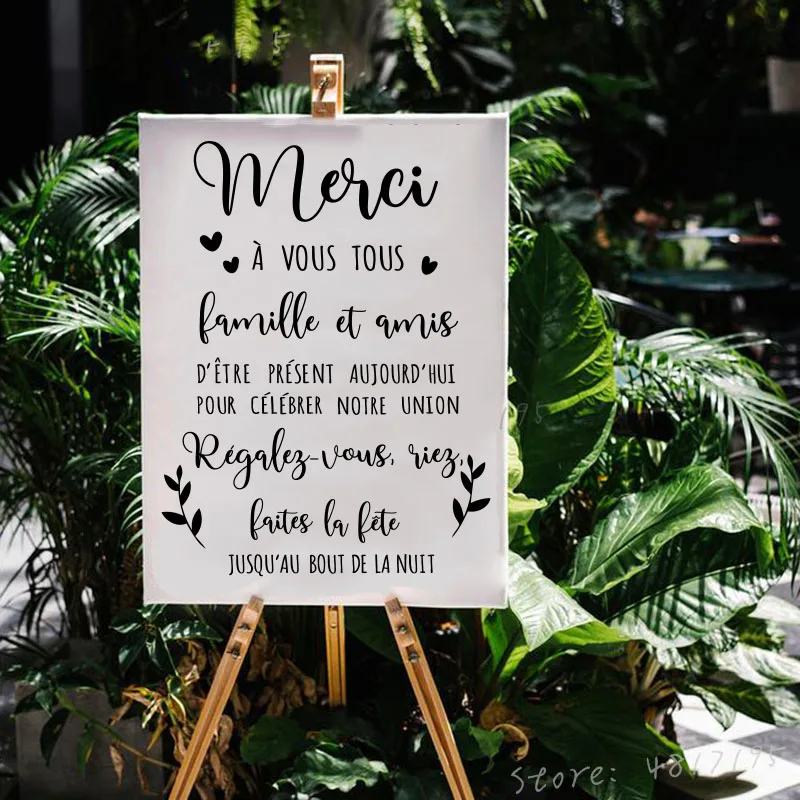 Merci
À VOUS TOUS
famille et amis
D'ÊTRE PRÉSENT AUJOURD'HUI
POUR CÉLÉBRER NOTRE UNION
Régalez-vous, riez,
faites la fête
JUSQU'AU BOUT DE LA NUIT
store: